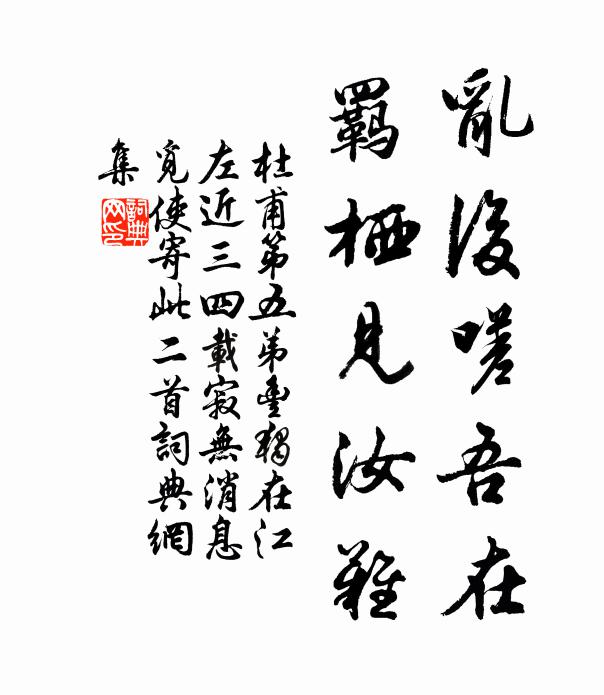 亂後嗟吾在
羈栖見汝難
杜甫第五弟豐獨在江
左近三四載寂無消息
覓使寄此二首詞典網
集
詞典
网印